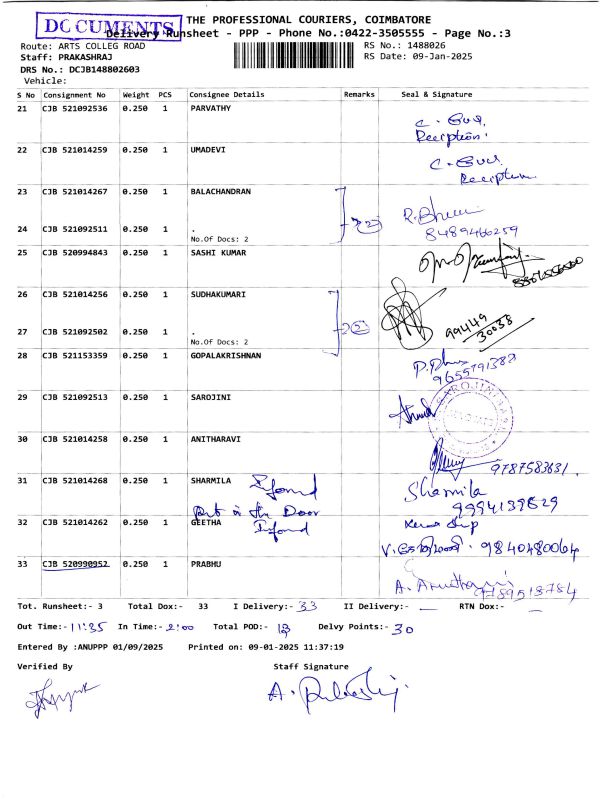 DOCUMENTS
THE PROFESSIONAL COURIERS, COIMBATORE
Delivery Runsheet - PPP - Phone No.:0422-3505555 - Page No.:3
Route: ARTS COLLEG ROAD
RS No.: 1488026
Staff: PRAKASHRAJ
RS Date: 09-Jan-2025
DRS No.: DCJB148802603
Vehicle:
S No Consignment No Weight PCS Consignee Details Remarks Seal & Signature
21 CJB 521092536 0.250 1 PARVATHY
Reception.
22 CJB 521014259 0.250 1 UMADEVI
Reception
23 CJB 521014267 0.250 1 BALACHANDRAN
8489466259
24 CJB 521092511 0.250 1 .
No.Of Docs: 2
25 CJB 520994843 0.250 1 SASHI KUMAR
26 CJB 521014256 0.250 1 SUDHAKUMARI
99449
30038
27 CJB 521092502 0.250 1 .
No.Of Docs: 2
28 CJB 521153359 0.250 1 GOPALAKRISHNAN
29 CJB 521092513 0.250 1 SAROJINI
30 CJB 521014258 0.250 1 ANITHARAVI
9787583631.
31 CJB 521014268 0.250 1 SHARMILA
Sharmila
Put in the Door
32 CJB 521014262 0.250 1 GEETHA
9840480064
33 CJB 520990952 0.250 1 PRABHU
9789518784
Tot. Runsheet:- 3 Total Dox:- 33 I Delivery:- 33 II Delivery:- — RTN Dox:- —
Out Time:- 11:35 In Time:- 2:00 Total POD:- 13 Delvy Points:- 30
Entered By :ANUPPP 01/09/2025 Printed on: 09-01-2025 11:37:19
Verified By Staff Signature